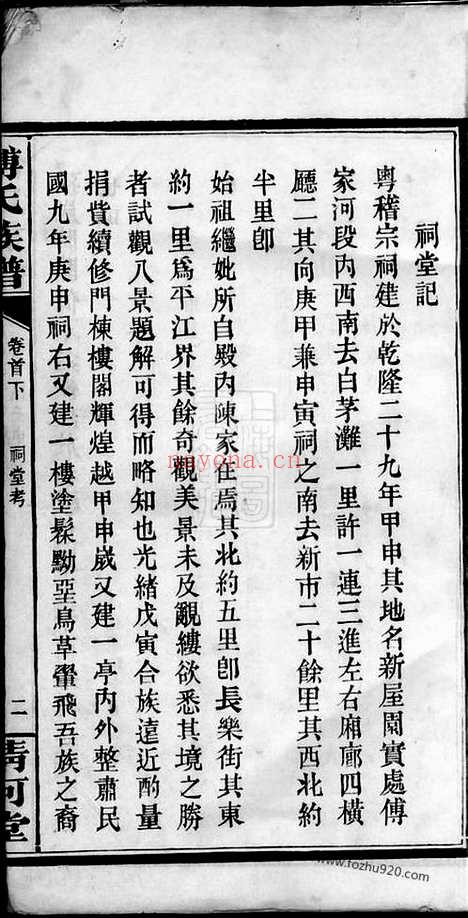 祠堂記
粵稽宗祠建於乾隆二十九年甲申其地名新屋閈實處傅
家河段內西南去白茅灘一里許一連三進左右廂廊四橫
廳二其向庚甲兼申寅祠之南去新市二十餘里其西北約
半里卽
始祖繼妣所自殿內陳家在焉其北約五里卽長樂街其東
約一里爲平江界其餘奇觀美景未及覼縷欲悉其境之勝
者試觀八景題解可得而略知也光緒戊寅合族遠近酌量
捐貲續修門棟樓閣輝煌越甲申歲又建一亭內外整肅民
國九年庚申祠右又建一樓塗髹黝堊鳥草翬飛吾族之裔
傅氏族譜
卷首下
祠堂考
二
清河堂
nayona.cn
www.fozhu920.com